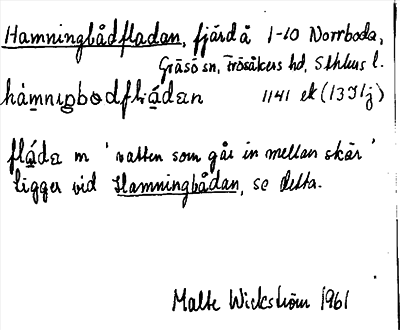 Hamningbådfladan, fjärd å 1-10 Norrboda,
Gräsö sn, Frösåkers hd, Sthlms l.
1141 ek (13I1j)
flada m 'vatten som går in mellan skär'
ligger vid Hamningbådan, se detta.
Malte Wickström 1961